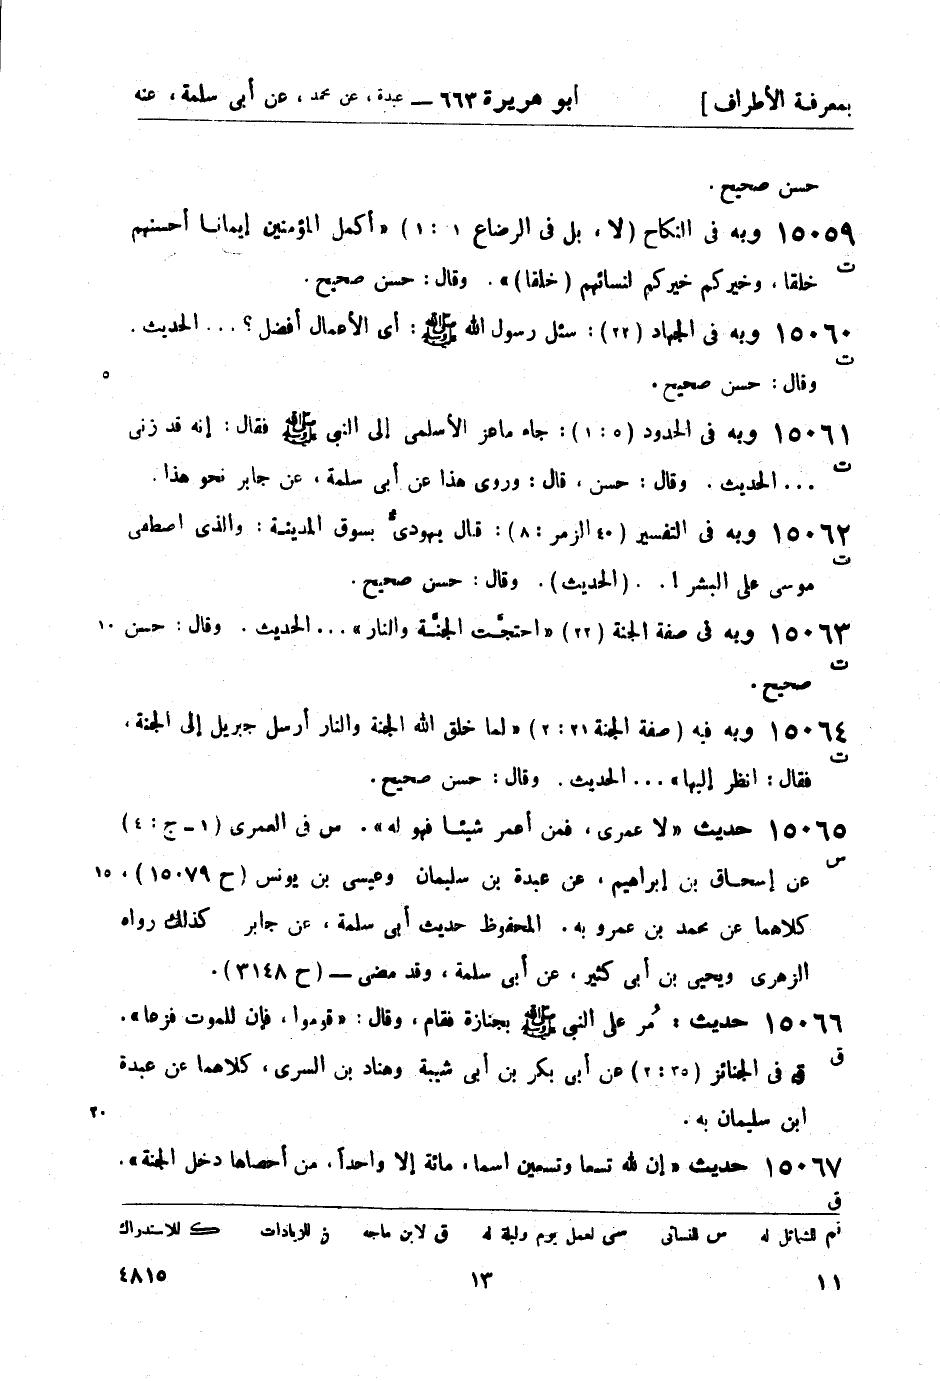 بمعرفة الأطراف] أبو هريرة ٦٦٣ — عبدة ، عن محمد ، عن أبى سلمة ، عنه
حسن صحيح .
١٥٠٥٩ وبه فى النكاح (لا ، بل فى الرضاع ١ : ١) « أكمل المؤمنين إيمانـا أحسنهم
ت
خلقا ، وخيركم خيركم لنسائهم (خلقا) » . وقال : حسن صحيح .
١٥٠٦٠ وبه فى الجهاد (٢٢) : سئل رسول الله ﷺ : أى الأعمال أفضل ؟ ... الحديث .
ت
وقال : حسن صحيح . ٥
١٥٠٦١ وبه فى الحدود (٥ : ١) : جاء ماعز الأسلمى إلى النبى ﷺ فقال : إنه قد زنى
ت
... الحديث . وقال : حسن ، قال : وروى هذا عن أبى سلمة ، عن جابر نحو هذا .
١٥٠٦٢ وبه فى التفسير (٤٠ الزمر : ٨) : قـال يهودىٌ بسوق المدينـة : والذى اصطفى
ت
موسى على البشر ! . . (الحديث) . وقال : حسن صحيح .
١٥٠٦٣ وبه فى صفة الجنة (٢٢) « احتجَّـت الجنَّـة والنار » ... الحديث . وقال : حسن ١٠
ت
صحيح .
١٥٠٦٤ وبه فيه (صفة الجنة ٢١ : ٢) « لما خلق الله الجنة والنار أرسل جبريل إلى الجنة ،
ت
فقال : انظر إليها » ... الحديث . وقال : حسن صحيح .
١٥٠٦٥ حديث « لا عمرى ، فمن أعمر شيئـا فهو له » . س فى العمرى (١ ـ ج : ٤)
س
عن إسحـاق بن إبراهيم ، عن عبدة بن سليمان وعيسى بن يونس (ح ١٥٠٧٩) ، ١٥
كلاهما عن محمد بن عمرو به . المحفوظ حديث أبى سلمة ، عن جابر كذلك رواه
الزهرى ويحيى بن أبى كثير ، عن أبى سلمة ، وقد مضى — (ح ٣١٤٨) .
١٥٠٦٦ حديث : مُر على النبى ﷺ بجنازة فقام ، وقال : « قوموا ، فإن للموت فزعا » .
ق
ق فى الجنائز (٣٥ : ٢) عن أبى بكر بن أبى شيبة وهناد بن السرى ، كلاهما عن عبدة
ابن سليمان به . ٢٠
١٥٠٦٧ حديث « إن لله تسعا وتسعين اسما ، مائة إلا واحداً ، من أحصاها دخل الجنة » .
ق
تم للشمائل له س للنسائى سى لعمل يوم وليلة له ق لابن ماجه ز للزيادات ك للاستدراك
١١ ١٣ ٤٨١٥